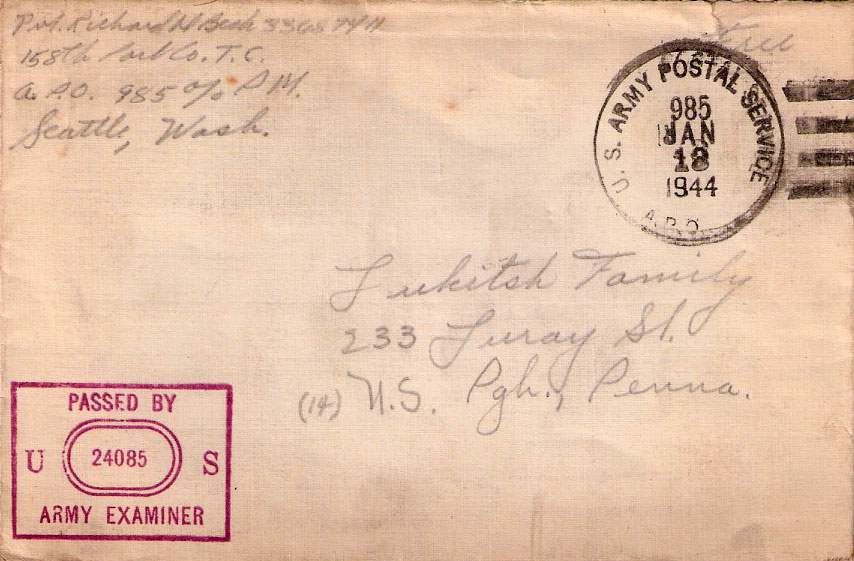 Pvt. Richard W Beck
158th Port Co. T.C.
A.P.O. 985 c/o P.M.
Seattle, Wash.
Free
U.S. ARMY POSTAL SERVICE
985
JAN
18
1944
A.P.O.
Lukitsh Family
233 Luray St.
(14) N.S. Pgh., Penna.
PASSED BY
U 24085 S
ARMY EXAMINER